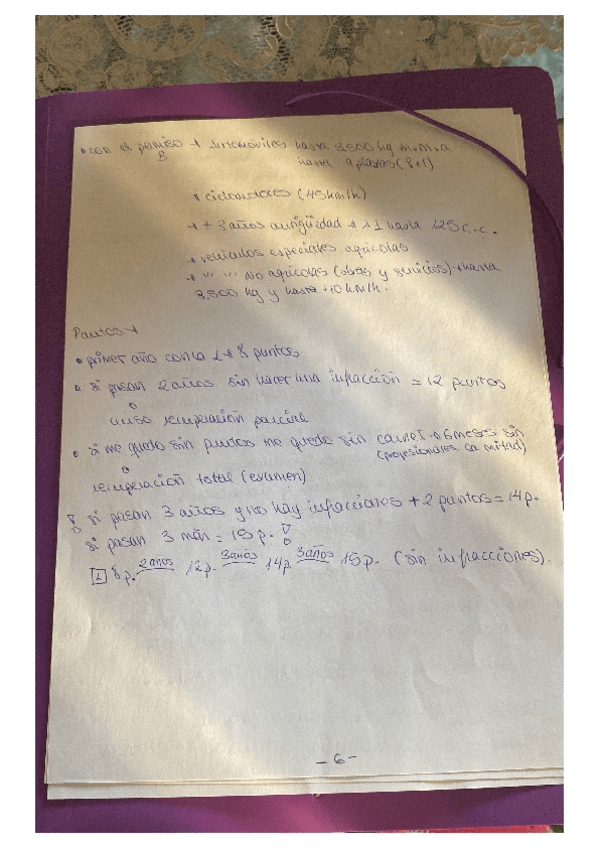 • con el permiso B → automóviles hasta 3500 kg m.m.a
hasta 9 plazas (8+1)
• ciclomotores (45km/h)
→ + 3 años antigüedad → A1 hasta 125 c.c.
→ vehículos especiales agrícolas
→ " " " NO agrícolas (obras y servicios) → hasta
3.500 kg y hasta 40 km/h.
Puntos →
• primer año con la L → 8 puntos
• si pasan 2 años sin hacer una infracción = 12 puntos
curso recuperación parcial
• si me quedo sin puntos me quedo sin carnet → 6 meses sin
(profesionales la mitad)
recuperación total (examen)
si pasan 3 años y no hay infracciones + 2 puntos = 14 p.
si pasan 3 más = 15 p.
L 8 p. 2 años 12 p. 3 años 14 p 3 años 15 p. (sin infracciones).
- 6 -